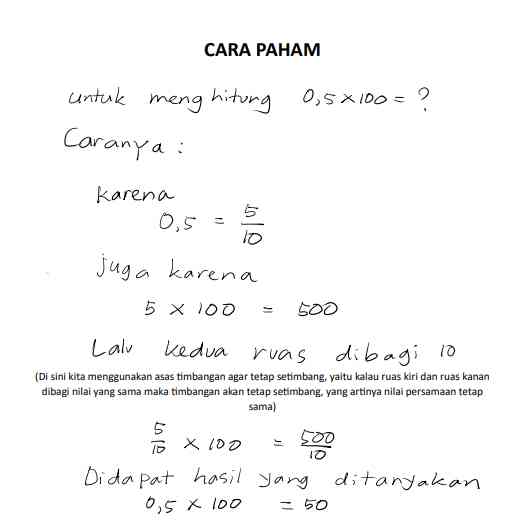 CARA PAHAM
untuk menghitung 0,5 × 100 = ?
Caranya :
karena
0,5 = 5/10
juga karena
5 × 100 = 500
Lalu kedua ruas dibagi 10
(Di sini kita menggunakan asas timbangan agar tetap setimbang, yaitu kalau ruas kiri dan ruas kanan
dibagi nilai yang sama maka timbangan akan tetap setimbang, yang artinya nilai persamaan tetap
sama)
5/10 × 100 = 500/10
Didapat hasil yang ditanyakan
0,5 × 100 = 50